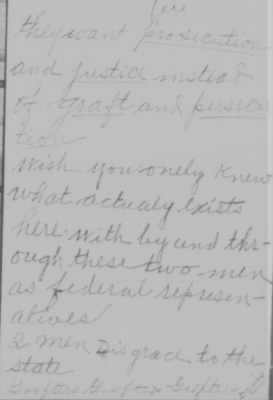 they want prosecution
and justice instead
of graft and persecu
tion
Wish you onely knew
what actualy exists
here with by and thr-
ough these two men
as federal represen-
atives
2 men Disgrace to the
state
Grafters Grafters Grafters